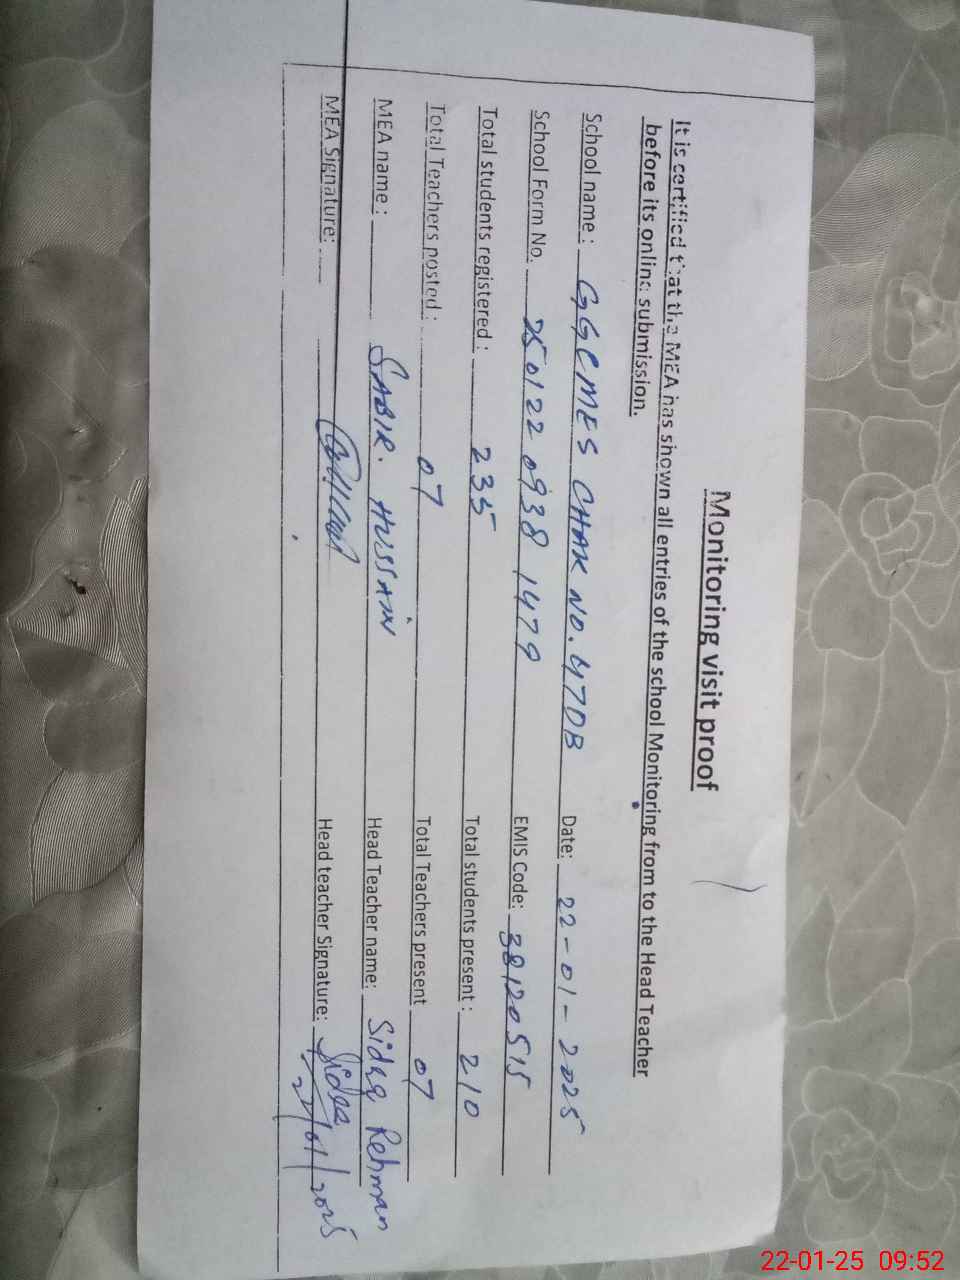 Monitoring visit proof
It is certified that the MEA has shown all entries of the school Monitoring from to the Head Teacher
before its online submission.
School name : GGCMES CHAK NO. 47DB Date: 22-01-2025
School Form No. 250122 0938 1479 EMIS Code: 38120515
Total students registered : 235 Total students present : 210
Total Teachers posted : 07 Total Teachers present 07
MEA name : SABIR. HUSSAIN Head Teacher name: Sidra Rehman
MEA Signature: Head teacher Signature: Sidra
22/01/2025
22-01-25 09:52